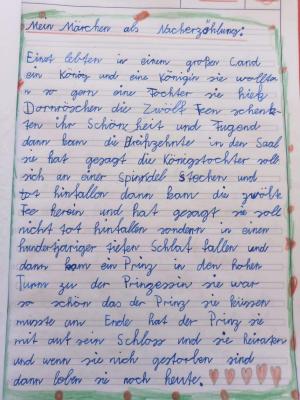 Mein Märchen als Nacherzählung:
Einst lebten in einem großen Land
ein König und eine Königin sie wollte
n so gern eine Tochter sie hieß
Dornröschen die Zwölf Feen schenk
ten ihr Schönheit und Tugend
dann kam die Dreihzehnte in den Saal
sie hat gesagt die Königstochter soll
sich an einer Spinndel Stechen und
tot hinfallen dann kam die zwölte
Fee herein und hat gesagt sie soll
nicht tot hinfallen sondern in einem
hundertjäriger tiefen Schlaf fallen und
dann kam ein Prinz in den hohen
Turm zu der Prinzessin sie war
so schön das der Prinz sie küssen
musste am Ende hat der Prinz sie
mit auf sein Schloss und sie heiraten
und wenn sie nich gestorben sind
dann leben sie noch heute.